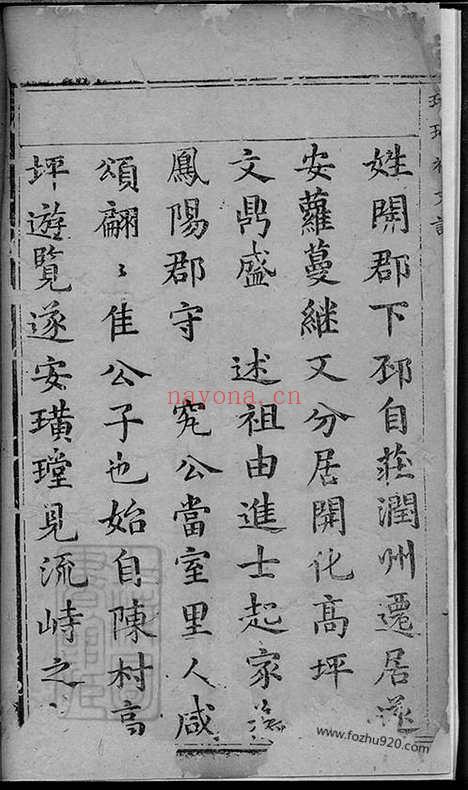 姓關郡下邳自莊潤州遷居遂
安蘿蔓継又分居開化高坪
文鼎盛　述祖由進士起家為
鳳陽郡守　究公當室里人咸
頌翩〻佳公子也始自陳村高
坪遊覽遂安璜瑝見流峙之
nayona.cn
www.fozhu920.com